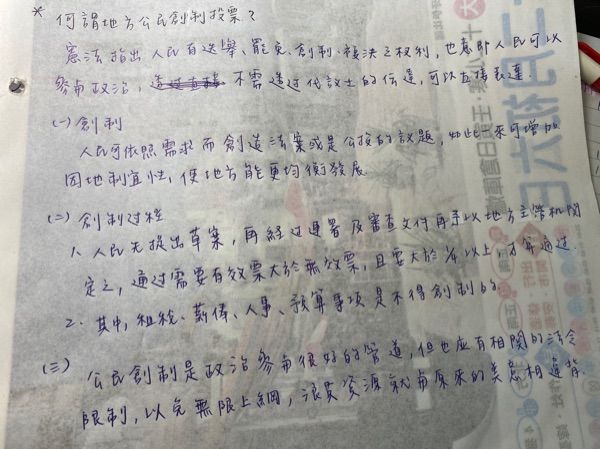 * 何謂地方公民創制投票?
憲法指出人民有選舉、罷免、創制、複決之权利,也意即人民可以
參与政治,不需透过代議士的伝達,可以直接表達.
(一) 創制
人民可依照需求而創造法案或是公投的議題,如此一來可增加
因地制宜性,使地方能更均衡發展
(二) 創制过程
1. 人民先提出草案,再經过連署及審查交付再予以地方主管机関
定之,通过需要有效票大於無效票,且要大於1/4以上,才算通过.
2. 其中,組織、薪俸、人事、預算事項是不得創制的.
(三) 公民創制是政治參与很好的管道,但也应有相関的法令
限制,以免無限上綱,浪費資源就与原來的美意相違背